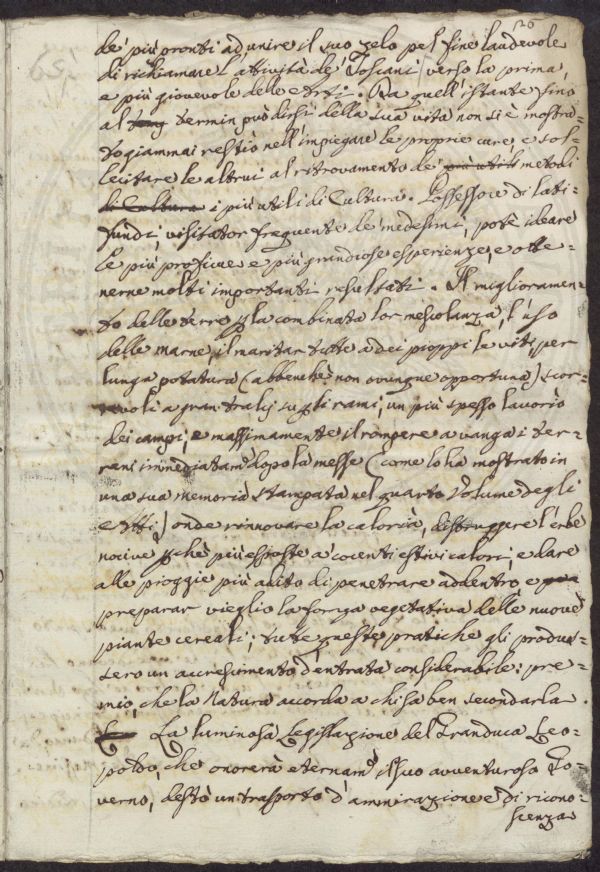 20
de' più pronti ad unire il suo zelo pel fine laudevole
di richiamare l'attività de' Toscani verso la prima,
e più giovevole delle Arti. Da quell'istante fino
al termin può dirsi della sua vita non si è mostra-
to giammai restio nell'impiegare le proprie cure, e sol-
lecitare le altrui al ritrovamento de' più utili metodi
di Coltura i più utili di Cultura. Possessore di lati-
fundi, visitator frequente de' medesimi, potè ideare
le più proficue e più grandiose esperienze, e otte-
nerne molti importanti resultati. Il migliioramen-
to delle terre p la combinata lor mescolanza, l'uso
delle marne, il maritar tutte a dei pioppi le viti, per
lunga potatura (abbenchè non ovunque opportuna) scor-
revoli a gran tralcj su gli rami, un più spesso lavorio
dei campi, e massimamente il rompere a vanga i ter-
reni immediatam.e dopo la messe (come lo ha mostrato in
una sua memoria stampata nel quarto Volume degli
Atti) onde rinnovare la caloria, distruggere l'erbe
nocive pchè più esposte a' cocenti estivi calori, e dare
alle pioggie più adito di penetrare addentro, e
preparar meglio la forza vegetativa delle nuove
piante cereali; tutte queste pratiche gli produs-
sero un accrescimento d'entrata considerabile: pre-
mio, che la Natura accorda a chi sa ben secondarla.
La luminosa Legislazione del Granduca Leo-
poldo, che onorerà eternam.e il suo avventuroso Go-
verno, destò un trasporto d'ammirazione e di ricono-
scenza